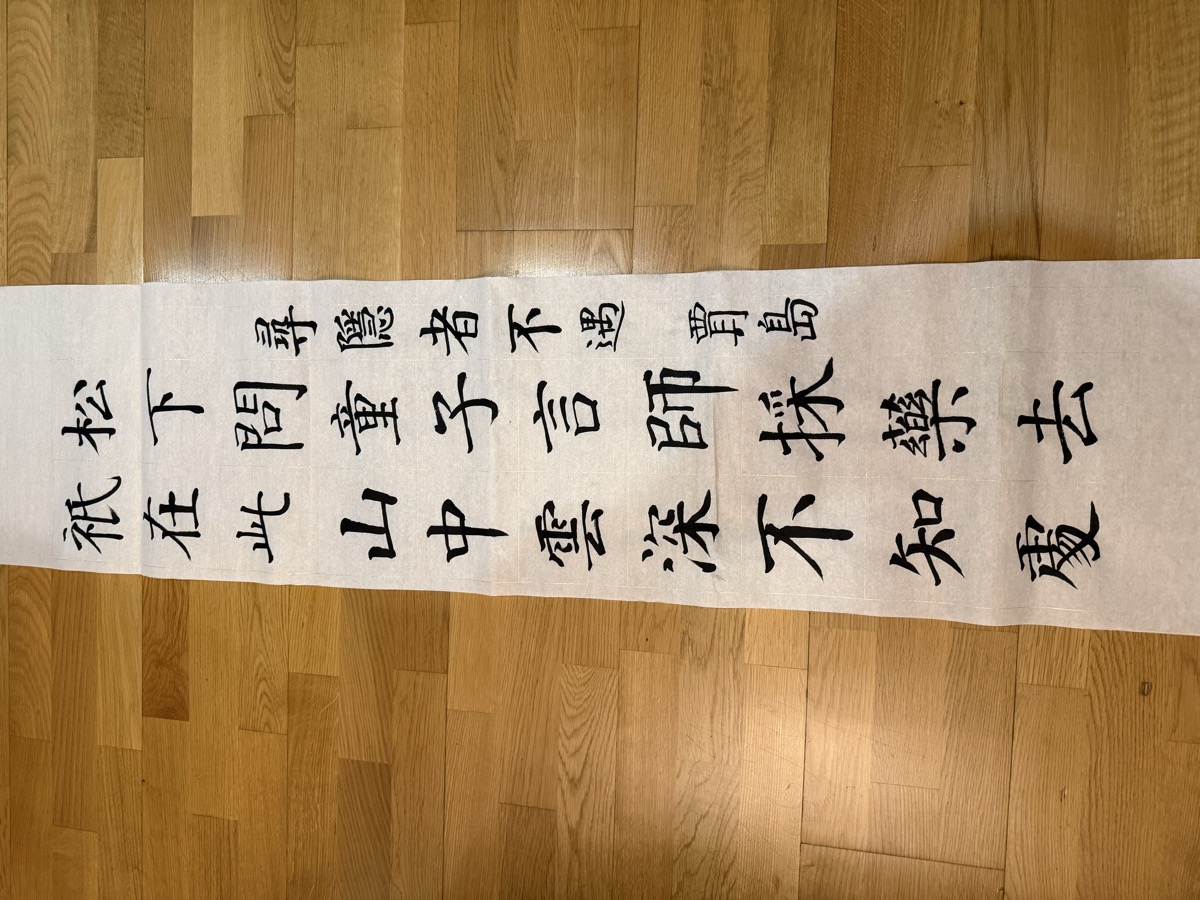 尋隱者不遇 賈島
松下問童子言師採藥去
祇在此山中雲深不知處